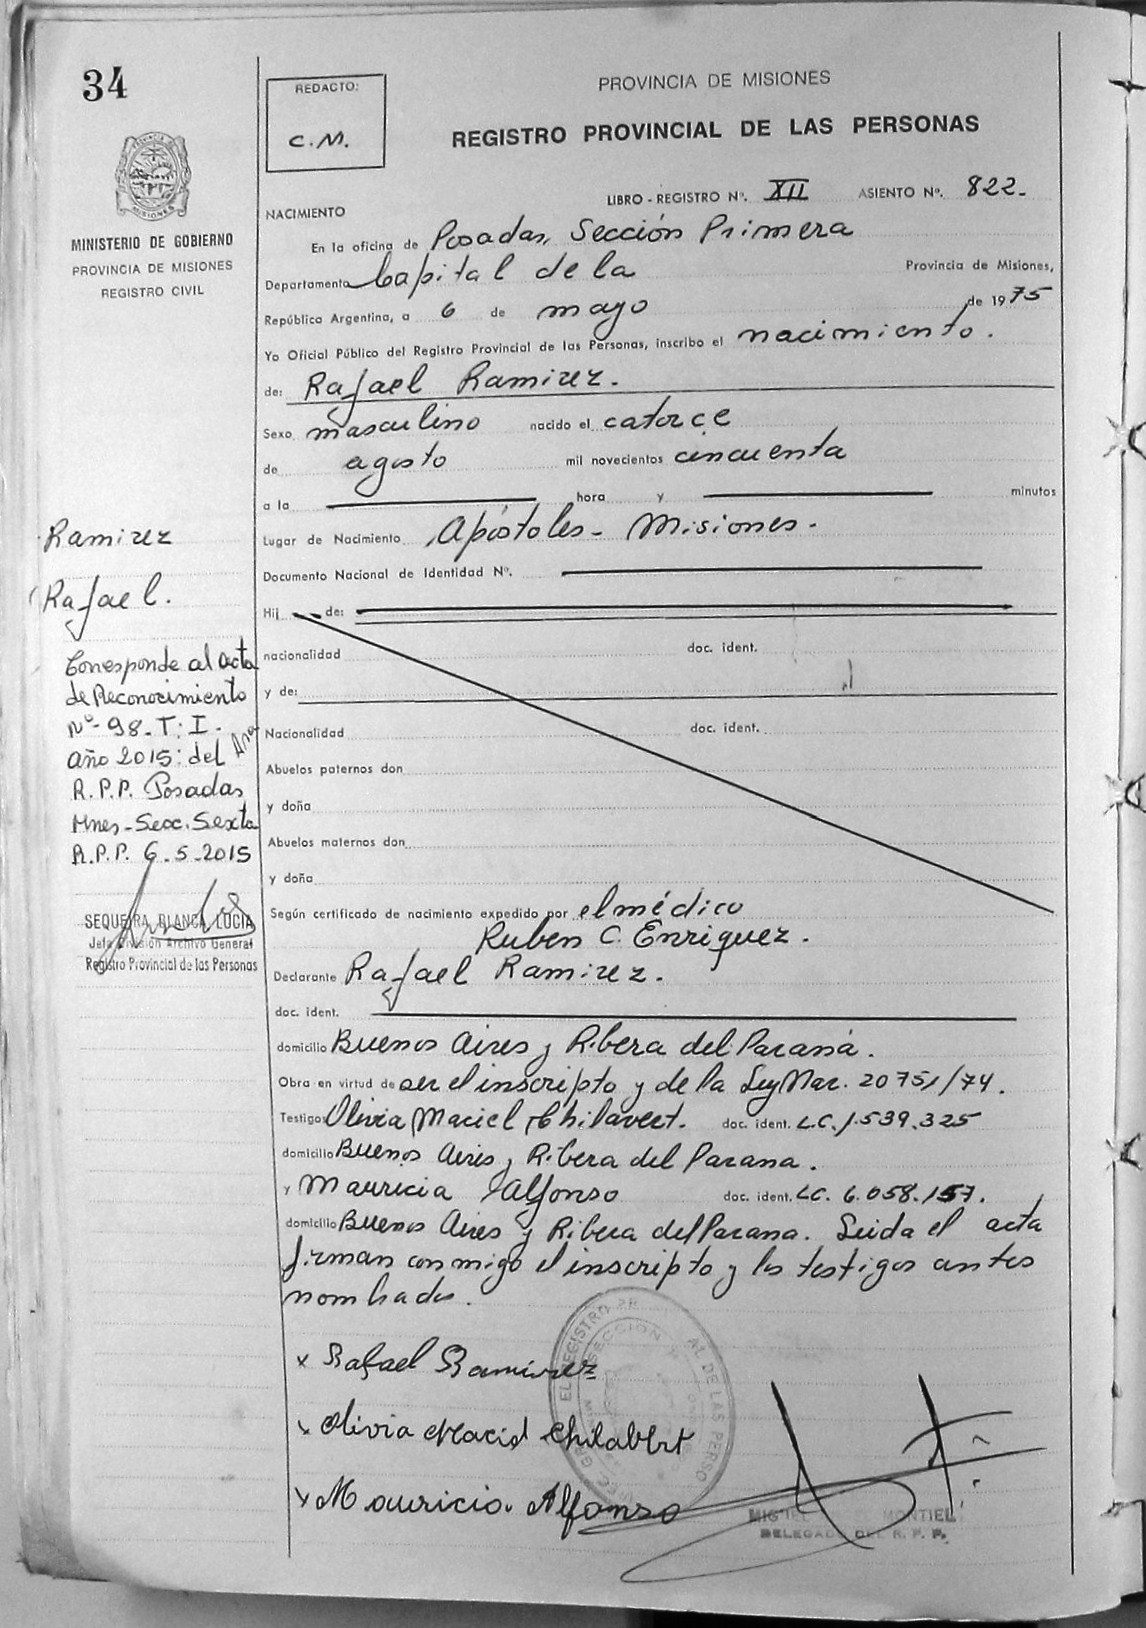 34
REDACTO:
C.M.
PROVINCIA DE MISIONES
REGISTRO PROVINCIAL DE LAS PERSONAS
MISIONES
MINISTERIO DE GOBIERNO
PROVINCIA DE MISIONES
REGISTRO CIVIL
LIBRO - REGISTRO Nº. XII ASIENTO Nº. 822.-
NACIMIENTO
En la oficina de Posadas, Sección Primera
Departamento Capital de la Provincia de Misiones,
República Argentina, a 6 de mayo de 1975
Yo Oficial Público del Registro Provincial de las Personas, inscribo el nacimiento.
de: Rafael Ramirez.
Sexo masculino nacido el catorce
de agosto mil novecientos cincuenta
a la hora y minutos
Lugar de Nacimiento Apóstoles - Misiones.
Documento Nacional de Identidad Nº.
Hij de:
nacionalidad doc. ident.
y de:
Nacionalidad doc. ident.
Abuelos paternos don
y doña
Abuelos maternos don
y doña
Según certificado de nacimiento expedido por el médico
Ruben C. Enriquez.
Declarante Rafael Ramirez.
doc. ident.
domicilio Buenos Aires y Ribera del Paraná.
Obra en virtud de ser el inscripto y de la Ley Nac. 20751/74.
Testigo: Olivia Maciel Chilavert. doc. ident. L.C. 1.539.325
domicilio Buenos Aires y Ribera del Parana.
y Mauricia Alfonso doc. ident. LC. 6.058.157.
domicilio Buenos Aires y Ribera del Parana. Leida el acta
firman conmigo el inscripto y los testigos antes
nombrados.
x Rafael Ramirez
x Olivia Maciel Chilabert
x Mauricia Alfonso
EL REGISTRO PR AL DE LAS PERSO
SECCION
MIGUEL MONTIEL
DELEGADO DEL R. P. P.
Ramirez
Rafael.
Corresponde al acta
de Reconocimiento
Nº 98 - T: I -
año 2015: del
R.P.P. Posadas
Mnes - Secc. Sexta
R.P.P. 6-5-2015
SEQUEIRA BLANCA LUCIA
Jefe División Archivo General
Registro Provincial de las Personas